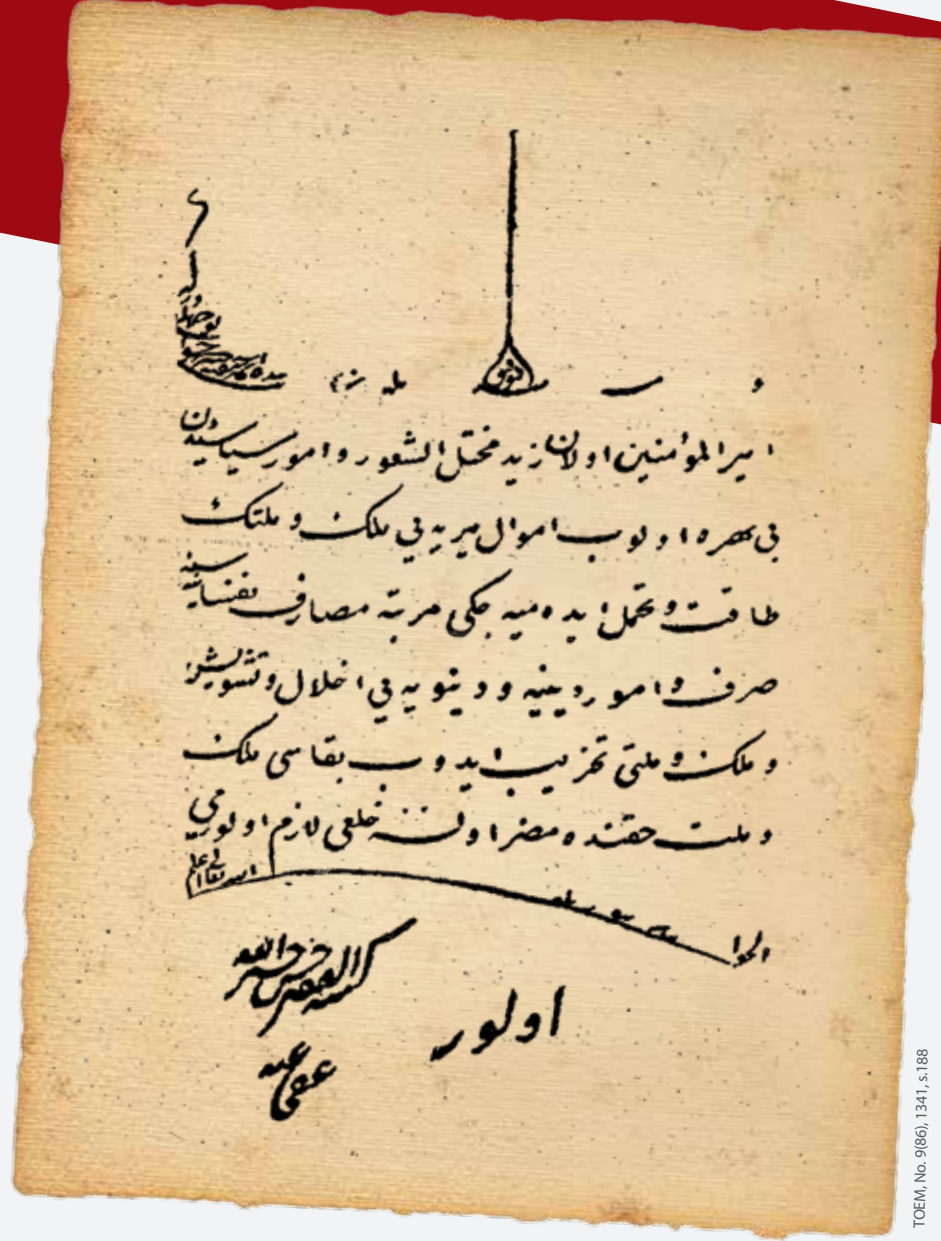 امیر المؤمنین اولان زید مختل الشعور و امور سیاسیه‌دن
بی بهره اولوب اموال میریه‌یی ملک و ملتک
طاقت و تحمل ایده‌میه‌جکی مرتبه مصارف نفسانیه‌سنه
صرف و امور دینیه و دنیویه‌یی اخلال و تشویش
و ملک و ملتی تخریب ایدوب بقاسی ملک
و ملت حقنده مضر اولسه خلعی لازم اولورمی
الجواب الله تعالی اعلم
اولور
كتبه الفقير حسن خيرالله
عفی عنه
TOEM, No. 9(86), 1341, s.188